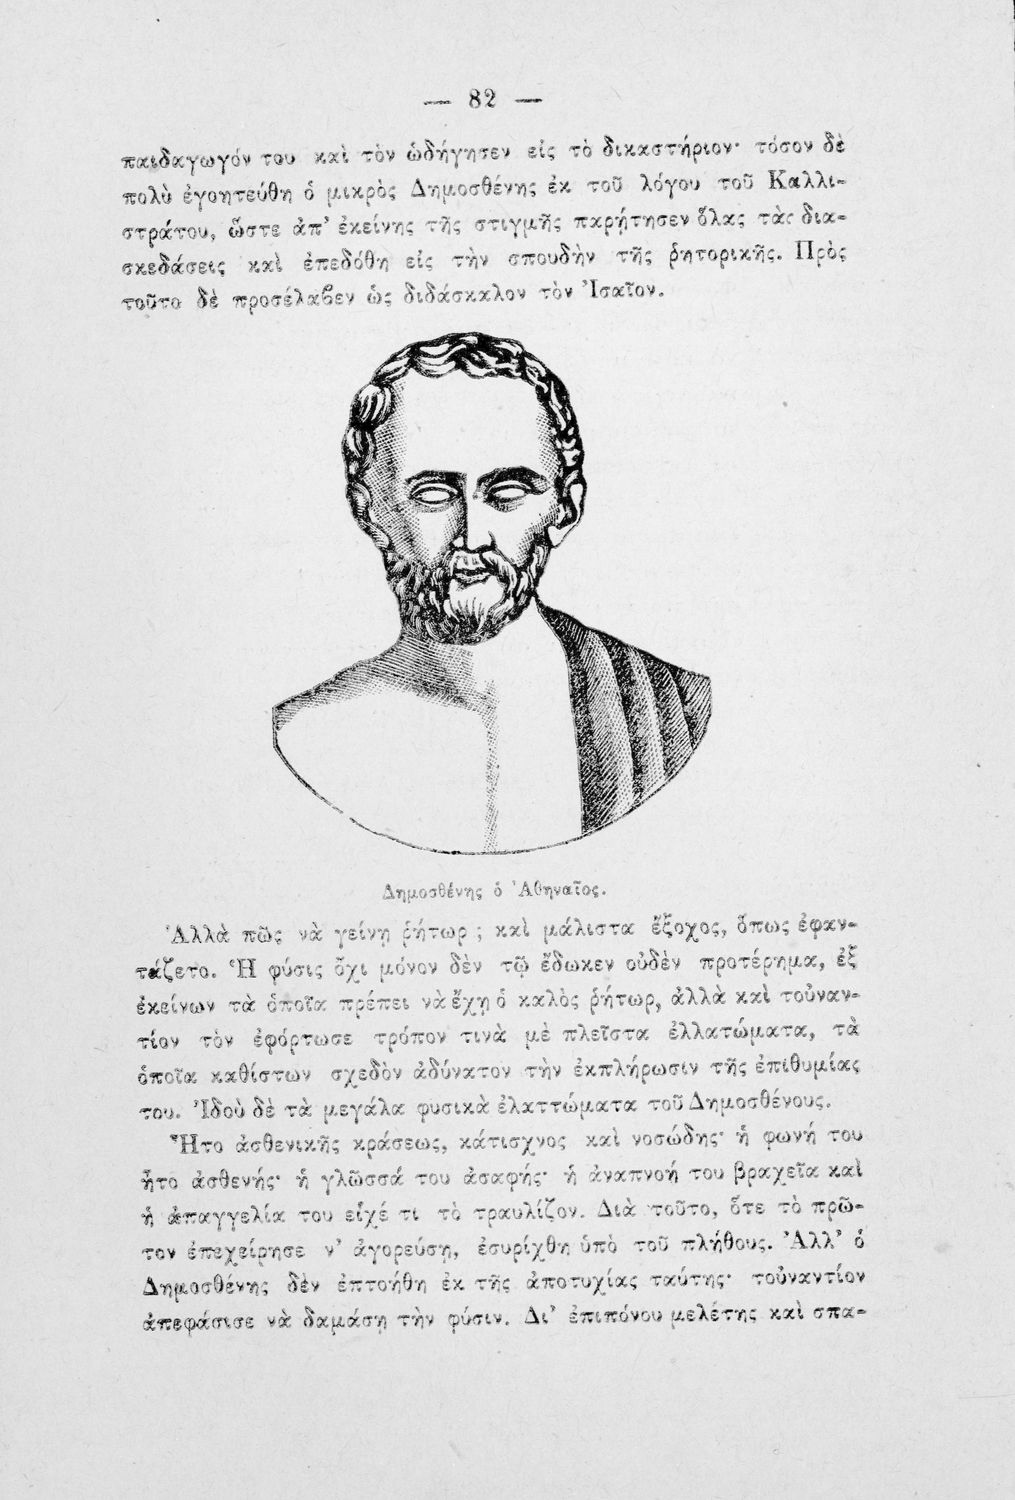 — 82 —
παιδαγωγόν του καὶ τὸν ὡδήγησεν εἰς τὸ δικαστήριον· τόσον δὲ
πολὺ ἐγοητεύθη ὁ μικρὸς Δημοσθένης ἐκ τοῦ λόγου τοῦ Καλλι-
στράτου, ὥστε ἀπ' ἐκείνης τῆς στιγμῆς παρῄτησεν ὅλας τὰς δια-
σκεδάσεις καὶ ἐπεδόθη εἰς τὴν σπουδὴν τῆς ῥητορικῆς. Πρὸς
τοῦτο δὲ προσέλαβεν ὡς διδάσκαλον τὸν Ἰσαῖον.
Δημοσθένης ὁ Ἀθηναῖος.
Ἀλλὰ πῶς νὰ γείνῃ ῥήτωρ ; καὶ μάλιστα ἔξοχος, ὅπως ἐφαν-
τάζετο. Ἡ φύσις ὄχι μόνον δὲν τῷ ἔδωκεν οὐδὲν προτέρημα, ἐξ
ἐκείνων τὰ ὁποῖα πρέπει νὰ ἔχῃ ὁ καλὸς ῥήτωρ, ἀλλὰ καὶ τοὐναν-
τίον τὸν ἐφόρτωσε τρόπον τινὰ μὲ πλεῖστα ἐλλατώματα, τὰ
ὁποῖα καθίστων σχεδὸν ἀδύνατον τὴν ἐκπλήρωσιν τῆς ἐπιθυμίας
του. Ἰδοὺ δὲ τὰ μεγάλα φυσικὰ ἐλαττώματα τοῦ Δημοσθένους.
Ἦτο ἀσθενικῆς κράσεως, κάτισχνος καὶ νοσώδης· ἡ φωνή του
ἦτο ἀσθενής· ἡ γλῶσσά του ἀσαφής· ἡ ἀναπνοή του βραχεῖα καὶ
ἡ ἀπαγγελία του εἶχέ τι τὸ τραυλίζον. Διὰ τοῦτο, ὅτε τὸ πρῶ-
τον ἐπεχείρησε ν' ἀγορεύσῃ, ἐσυρίχθη ὑπὸ τοῦ πλήθους. Ἀλλ' ὁ
Δημοσθένης δὲν ἐπτοήθη ἐκ τῆς ἀποτυχίας ταύτης· τοὐναντίον
ἀπεφάσισε νὰ δαμάσῃ τὴν φύσιν. Δι' ἐπιπόνου μελέτης καὶ σπα-